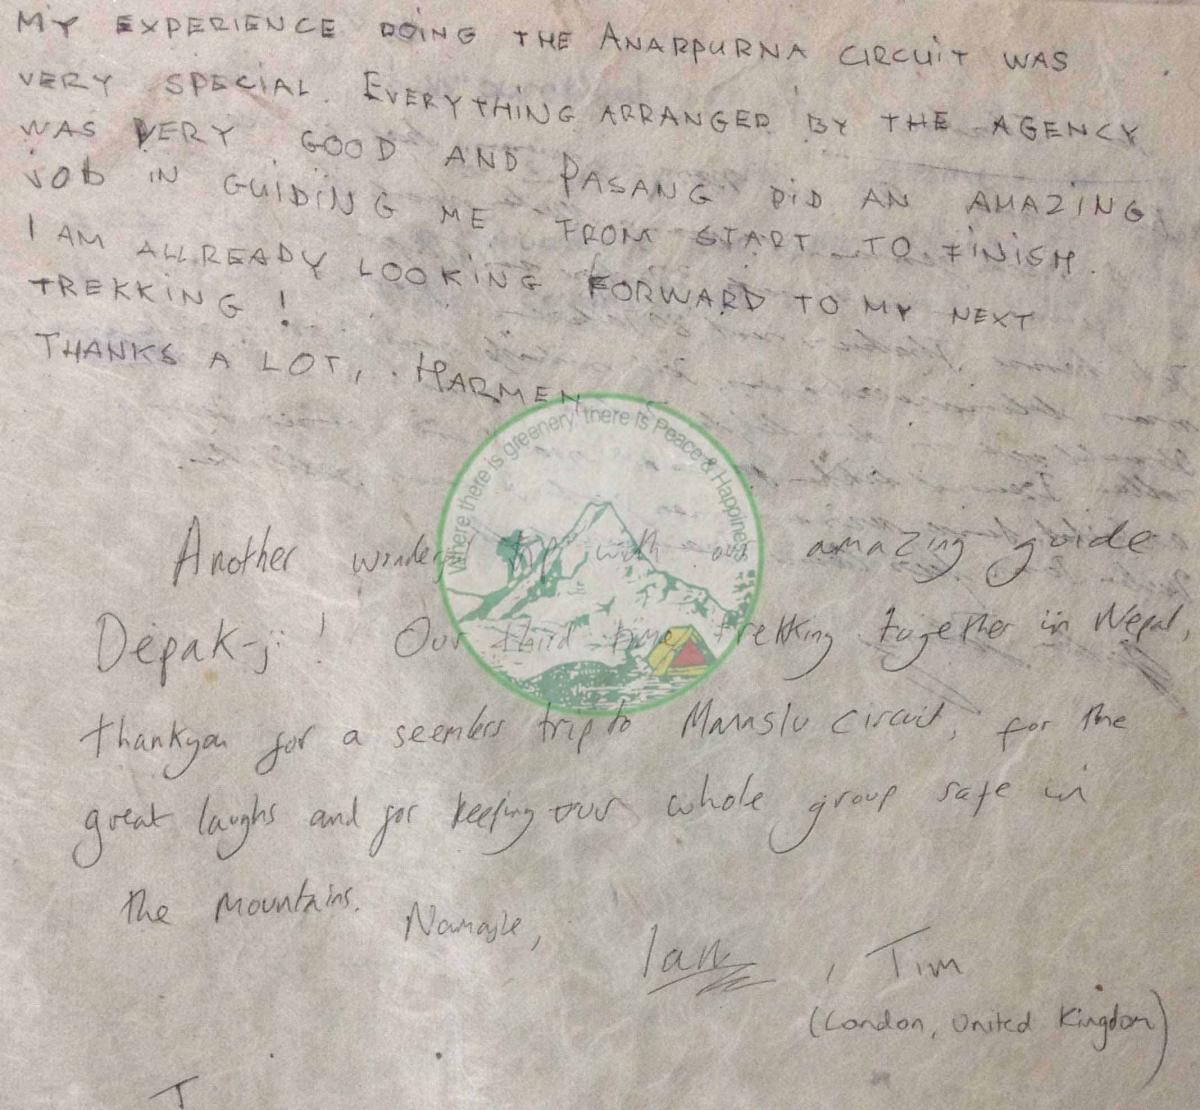 MY EXPERIENCE DOING THE ANARPURNA CIRCUIT WAS
VERY SPECIAL. EVERYTHING ARRANGED BY THE AGENCY
WAS VERY GOOD AND PASANG DID AN AMAZING
JOB IN GUIDING ME FROM START TO FINISH.
I AM ALLREADY LOOKING FORWARD TO MY NEXT
TREKKING !
THANKS A LOT, HARMEN
Where there is greenery, there is Peace & Happiness
Another trip with our amazing guide
Depak-ji! Our third time trekking together in Nepal,
thankyou for a seemless trip to Manaslu circuit, for the
great laughs and for keeping our whole group safe in
the mountains. Namaste,
Ian, Tim
(London, United Kingdom)